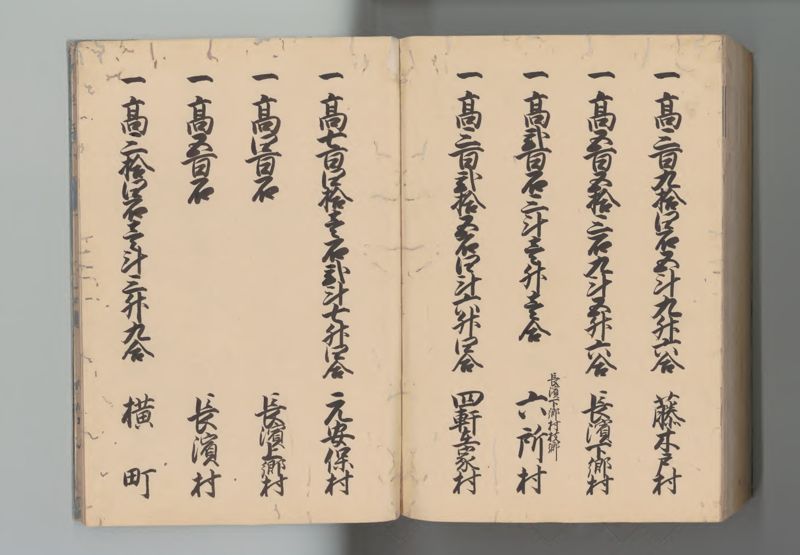 一 高三百九拾四石五斗九升六合 藤木戸村
一 高五百五拾三石九斗五升六合 長濱下郷村
一 高弐百石三斗壱升壱合 長濱下郷村枝郷 六所村
一 高三百弐拾五石四斗六升四合 四軒在家村
一 高七百四拾壱石弐斗七升四合 元安保村
一 高四百石 長濱上郷村
一 高五百石 長濱村
一 高三拾四石壱斗三升九合 横町